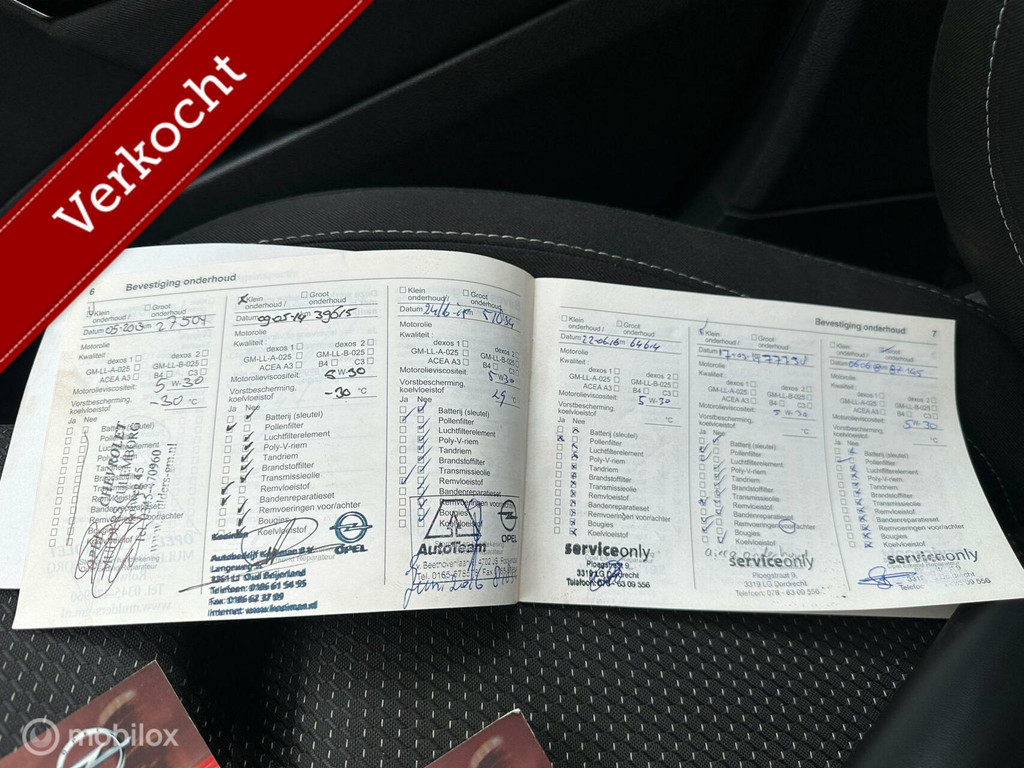 Verkocht
6 Bevestiging onderhoud
Klein onderhoud / Groot onderhoud
Datum 05-2013 km 27504
Motorolie
Kwaliteit :
dexos 1 dexos 2
GM-LL-A-025 GM-LL-B-025
ACEA A3 B4 C3
Motorolieviscositeit: 5 W-30
Vorstbescherming, koelvloeistof -30 °C
Ja Nee
Batterij (sleutel)
Pollenfilter
Luchtfilterelement
Poly-V-riem
Tandriem
Brandstoffilter
Transmissieolie
Remvloeistof
Bandenreparatieset
Remvoeringen voor/achter
Bougies
Koelvloeistof
Klein onderhoud / Groot onderhoud
Datum 09-05-14 km 39615
Motorolie
Kwaliteit :
dexos 1 dexos 2
GM-LL-A-025 GM-LL-B-025
ACEA A3 B4 C3
Motorolieviscositeit: 5 W-30
Vorstbescherming, koelvloeistof -30 °C
Ja Nee
Batterij (sleutel)
Pollenfilter
Luchtfilterelement
Poly-V-riem
Tandriem
Brandstoffilter
Transmissieolie
Remvloeistof
Bandenreparatieset
Remvoeringen voor/achter
Bougies
Koelvloeistof
OPEL
Langeweg
Oud Beijerland
Telefoon: 0186 61 54 95
Fax: 0186 62 37 09
Klein onderhoud / Groot onderhoud
Datum
Motorolie
Kwaliteit :
dexos 1 dexos 2
GM-LL-A-025 GM-LL-B-025
ACEA A3 B4 C3
Motorolieviscositeit: 5 W-30
Vorstbescherming, koelvloeistof °C
Ja Nee
Batterij (sleutel)
Pollenfilter
Luchtfilterelement
Poly-V-riem
Tandriem
Brandstoffilter
Transmissieolie
Remvloeistof
Bandenreparatieset
Remvoeringen voor/achter
Bougies
Koelvloeistof
OPEL
AutoTeam
Bevestiging onderhoud 7
Klein onderhoud / Groot onderhoud
Datum 22-06-16 km 64614
Motorolie
Kwaliteit :
dexos 1 dexos 2
GM-LL-A-025 GM-LL-B-025
ACEA A3 B4 C3
Motorolieviscositeit: 5 W-30
Vorstbescherming, koelvloeistof °C
Ja Nee
Batterij (sleutel)
Pollenfilter
Luchtfilterelement
Poly-V-riem
Tandriem
Brandstoffilter
Transmissieolie
Remvloeistof
Bandenreparatieset
Remvoeringen voor/achter
Bougies
Koelvloeistof
serviceonly
Ploegstraat 9
3319 LG Dordrecht
Telefoon: 078 - 63 09 556
Klein onderhoud / Groot onderhoud
Datum
Motorolie
Kwaliteit :
dexos 1 dexos 2
GM-LL-A-025 GM-LL-B-025
ACEA A3 B4 C3
Motorolieviscositeit: 5 W-30
Vorstbescherming, koelvloeistof °C
Ja Nee
Batterij (sleutel)
Pollenfilter
Luchtfilterelement
Poly-V-riem
Tandriem
Brandstoffilter
Transmissieolie
Remvloeistof
Bandenreparatieset
Remvoeringen voor/achter
Bougies
Koelvloeistof
serviceonly
Ploegstraat 9
3319 LG Dordrecht
Telefoon: 078 - 63 09 556
Klein onderhoud / Groot onderhoud
Datum
Motorolie
Kwaliteit :
dexos 1 dexos 2
GM-LL-A-025 GM-LL-B-025
ACEA A3 B4 C3
Motorolieviscositeit: 5 W-30
Vorstbescherming, koelvloeistof °C
Ja Nee
Batterij (sleutel)
Pollenfilter
Luchtfilterelement
Poly-V-riem
Tandriem
Brandstoffilter
Transmissieolie
Remvloeistof
Bandenreparatieset
Remvoeringen voor/achter
Bougies
Koelvloeistof
serviceonly
mobilox